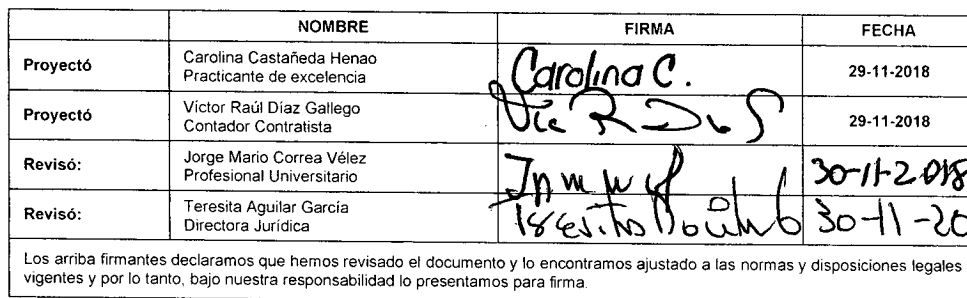 NOMBRE FIRMA FECHA
Proyectó Carolina Castañeda Henao Carolina C. 29-11-2018
Practicante de excelencia
Proyectó Víctor Raúl Díaz Gallego 29-11-2018
Contador Contratista
Revisó: Jorge Mario Correa Vélez 30-11-2018
Profesional Universitario
Revisó: Teresita Aguilar García 30-11-20
Directora Jurídica
Los arriba firmantes declaramos que hemos revisado el documento y lo encontramos ajustado a las normas y disposiciones legales
vigentes y por lo tanto, bajo nuestra responsabilidad lo presentamos para firma.